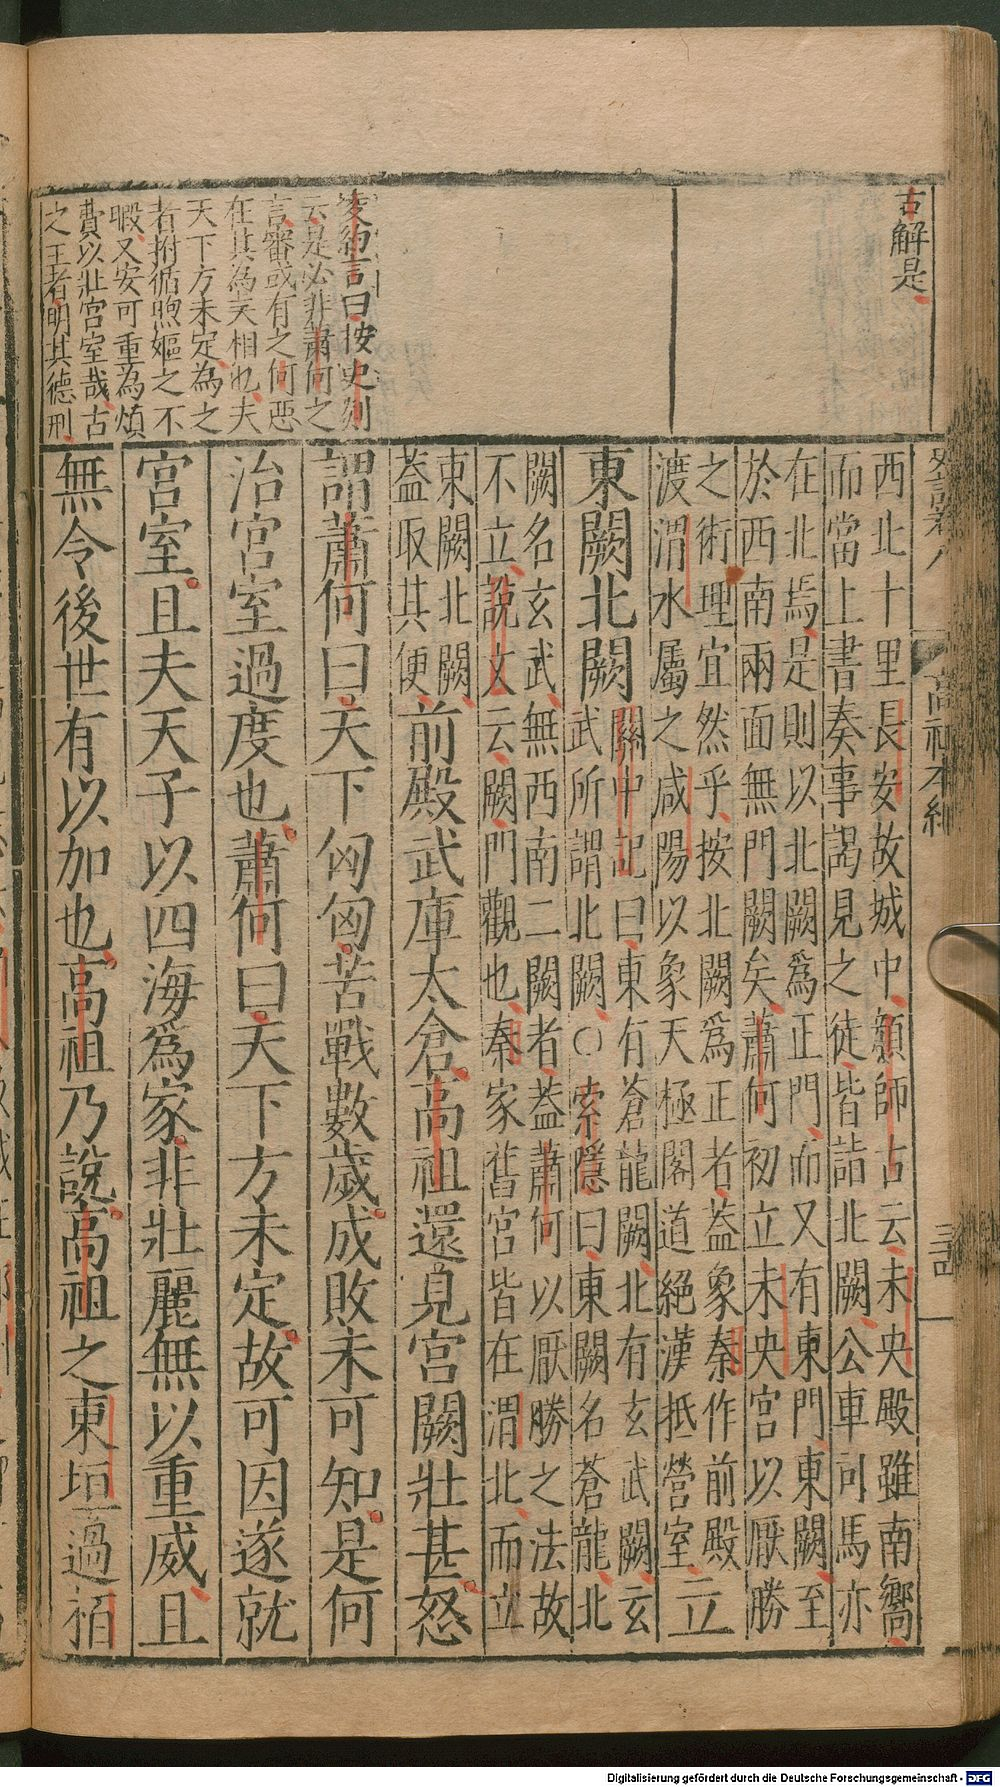 古解是
凌約言曰按史列
云是必非蕭何之
言審或有之何惡
在其為天相也夫
天下方未定為之
者拊循煦嫗之不
暇又安可重為煩
費以壯宮室哉古
之王者明其德刑
史記卷八
高祖本紀
西北十里長安故城中顏師古云未央殿雖南嚮
而當上書奏事謁見之徒皆詣北闕公車司馬亦
在北焉是則以北闕爲正門而又有東門東闕至
於西南兩面無門闕矣蕭何初立未央宮以厭勝
之術理宜然乎按北闕爲正者蓋象秦作前殿
渡渭水屬之咸陽以象天極閣道絕漢抵營室
立
東闕北闕
關中記曰東有蒼龍闕北有玄武闕玄
武所謂北闕○索隱曰東闕名蒼龍北
闕名玄武無西南二闕者蓋蕭何以厭勝之法故
不立說文云闕門觀也秦家舊宮皆在渭北而立
東闕北闕
蓋取其便
前殿武庫太倉高祖還見宮闕壯甚怒
謂蕭何曰天下匈匈苦戰數歲成敗未可知是何
治宮室過度也蕭何曰天下方未定故可因遂就
宮室且夫天子以四海爲家非壯麗無以重威且
無令後世有以加也高祖乃說高祖之東垣過栢
Digitalisierung gefördert durch die Deutsche Forschungsgemeinschaft - DFG